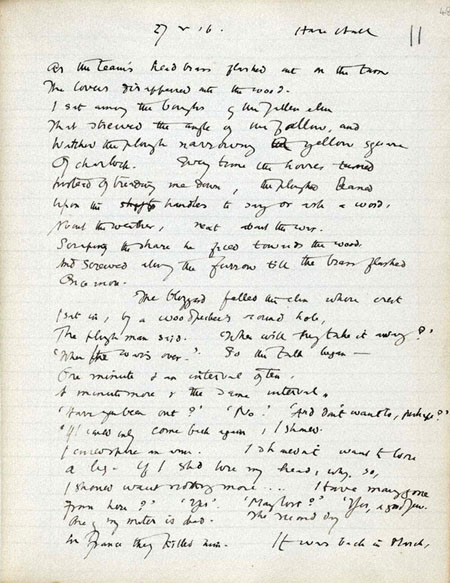 27 v 16. Hare Hall 11
48
As the team's head brass flashed out on the turn
The lovers disappeared into the wood.
I sat among the boughs of the fallen elm
That strewed the angle of the fallow, and
Watched the plough narrowing a yellow square
Of charlock. Every time the horses turned
Instead of treading me down, the ploughman leaned
Upon the handles to say or ask a word,
About the weather, next about the war.
Scraping the share he faced towards the wood,
And screwed along the furrow till the brass flashed
Once more.
The blizzard felled the elm whose crest
I sat in, by a woodpecker's round hole,
The ploughman said. 'When will they take it away?'
'When the war's over.' So the talk began –
One minute & an interval of ten,
A minute more & the same interval.
'Have you been out?' 'No.' 'And don't want to, perhaps?'
'If I could only come back again, I should.
I could spare an arm. I shouldn't want to lose
a leg. If I shd lose my head, why, so,
I should want nothing more.... Have many gone
From here?' 'Yes'. 'Many lost?' 'Yes, a good few.
One of my mates is dead. The second day
In France they killed him. It was back in March,